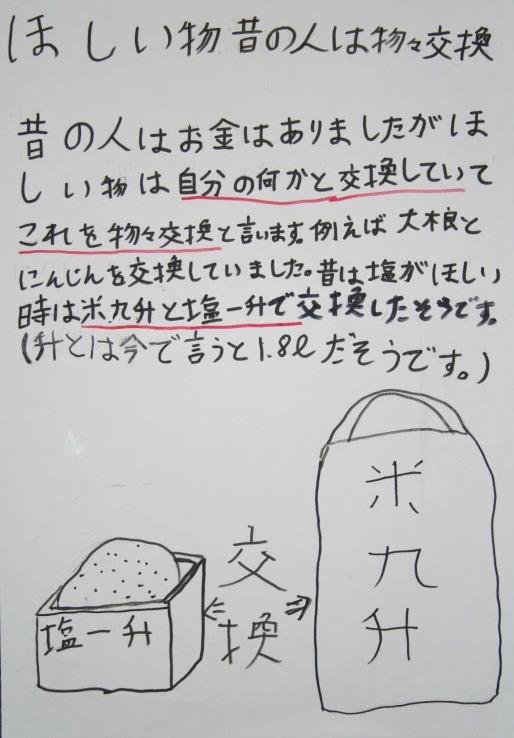 ほしい物昔の人は物々交換
昔の人はお金はありましたがほ
しい物は自分の何かと交換していて
これを物々交換と言います。例えば大根と
にんじんを交換していました。昔は塩がほしい
時は米九升と塩一升で交換したそうです。
(升とは今で言うと1.8ℓだそうです。)
塩一升
交換
米九升